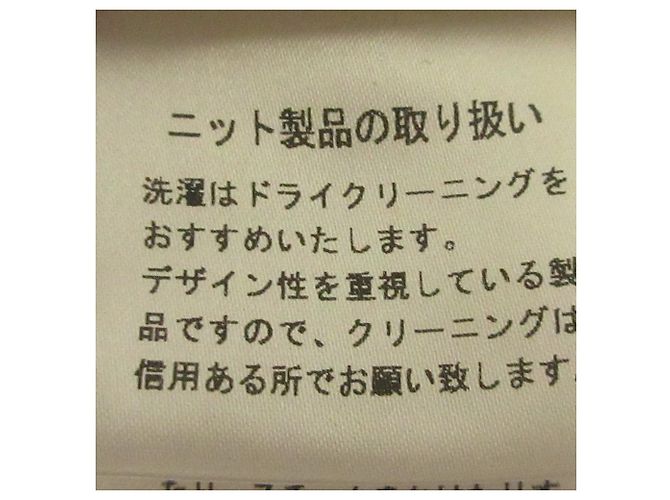 ニット製品の取り扱い
洗濯はドライクリーニングを
おすすめいたします。
デザイン性を重視している製
品ですので、クリーニングは
信用ある所でお願い致します。